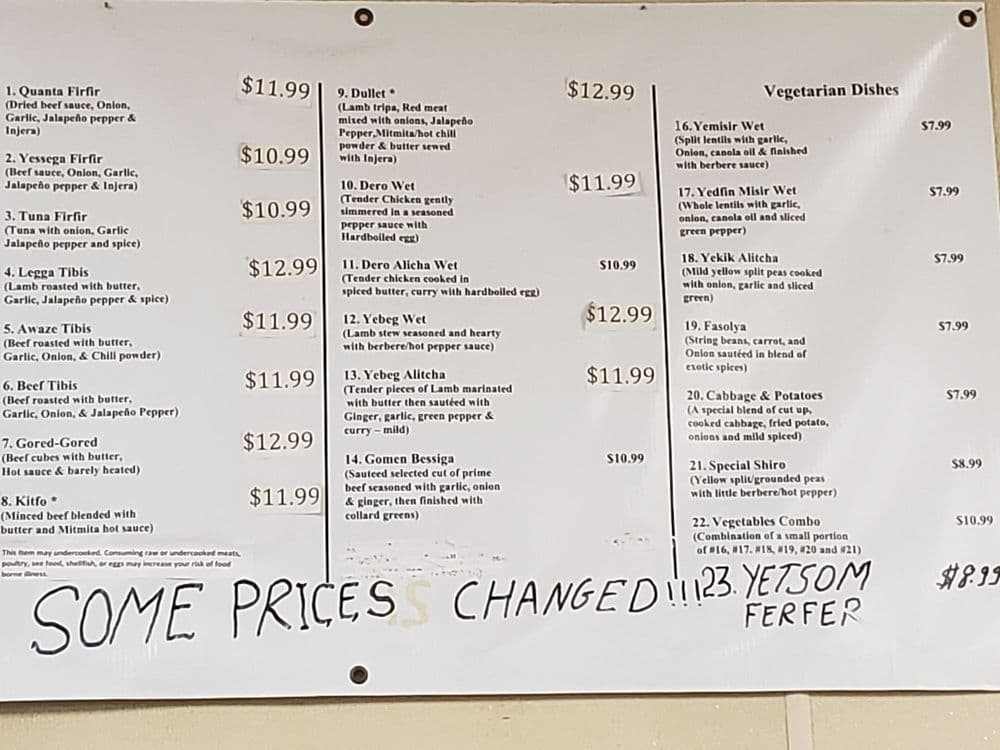 1. Quanta Firfir $11.99
(Dried beef sauce, Onion,
Garlic, Jalapeño pepper &
Injera)
2. Yessega Firfir $10.99
(Beef sauce, Onion, Garlic,
Jalapeño pepper & Injera)
3. Tuna Firfir $10.99
(Tuna with onion, Garlic
Jalapeño pepper and spice)
4. Legga Tibis $12.99
(Lamb roasted with butter,
Garlic, Jalapeño pepper & spice)
5. Awaze Tibis $11.99
(Beef roasted with butter,
Garlic, Onion, & Chili powder)
6. Beef Tibis $11.99
(Beef roasted with butter,
Garlic, Onion, & Jalapeño Pepper)
7. Gored-Gored $12.99
(Beef cubes with butter,
Hot sauce & barely heated)
8. Kitfo * $11.99
(Minced beef blended with
butter and Mitmita hot sauce)
This Item may undercooked. Consuming raw or undercooked meats,
poultry, see food, shellfish, or eggs may increase your risk of food
borne illness.
9. Dullet * $12.99
(Lamb tripa, Red meat
mixed with onions, Jalapeño
Pepper,Mitmita/hot chili
powder & butter sewed
with Injera)
10. Dero Wet $11.99
(Tender Chicken gently
simmered in a seasoned
pepper sauce with
Hardboiled egg)
11. Dero Alicha Wet $10.99
(Tender chicken cooked in
spiced butter, curry with hardboiled egg)
12. Yebeg Wet $12.99
(Lamb stew seasoned and hearty
with berbere/hot pepper sauce)
13. Yebeg Alitcha $11.99
(Tender pieces of Lamb marinated
with butter then sautéed with
Ginger, garlic, green pepper &
curry – mild)
14. Gomen Bessiga $10.99
(Sauteed selected cut of prime
beef seasoned with garlic, onion
& ginger, then finished with
collard greens)
Vegetarian Dishes
16. Yemisir Wet $7.99
(Split lentils with garlic,
Onion, canola oil & finished
with berbere sauce)
17. Yedfin Misir Wet $7.99
(Whole lentils with garlic,
onion, canola oil and sliced
green pepper)
18. Yekik Alitcha $7.99
(Mild yellow split peas cooked
with onion, garlic and sliced
green)
19. Fasolya $7.99
(String beans, carrot, and
Onion sautéed in blend of
exotic spices)
20. Cabbage & Potatoes $7.99
(A special blend of cut up,
cooked cabbage, fried potato,
onions and mild spiced)
21. Special Shiro $8.99
(Yellow split/grounded peas
with little berbere/hot pepper)
22. Vegetables Combo $10.99
(Combination of a small portion
of #16, #17. #18, #19, #20 and #21)
23. YETSOM $8.99
FERFER
SOME PRICES CHANGED!!!